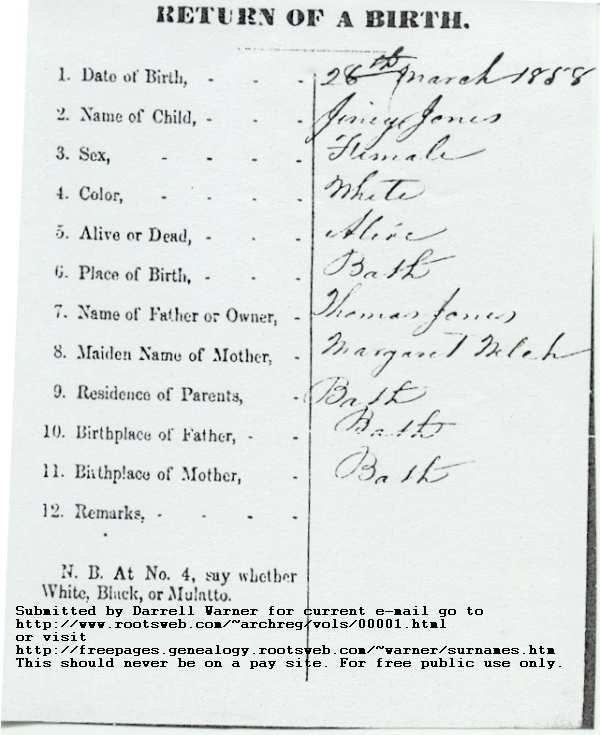 RETURN OF A BIRTH.
1. Date of Birth, - - - 28th March 1858
2. Name of Child, - - - Jiney Jones
3. Sex, - - - - Female
4. Color, - - - - White
5. Alive or Dead, - - - Alive
6. Place of Birth, - - - Bath
7. Name of Father or Owner, - Thomas Jones
8. Maiden Name of Mother, - Margaret Welch
9. Residence of Parents, - Bath
10. Birthplace of Father, - - Bath
11. Birthplace of Mother, - Bath
12. Remarks, - - - -
N. B. At No. 4, say whether
White, Black, or Mulatto.
Submitted by Darrell Warner for current e-mail go to
http://www.rootsweb.com/~archreg/vols/00001.html
or visit
http://freepages.genealogy.rootsweb.com/~warner/surnames.htm
This should never be on a pay site. For free public use only.